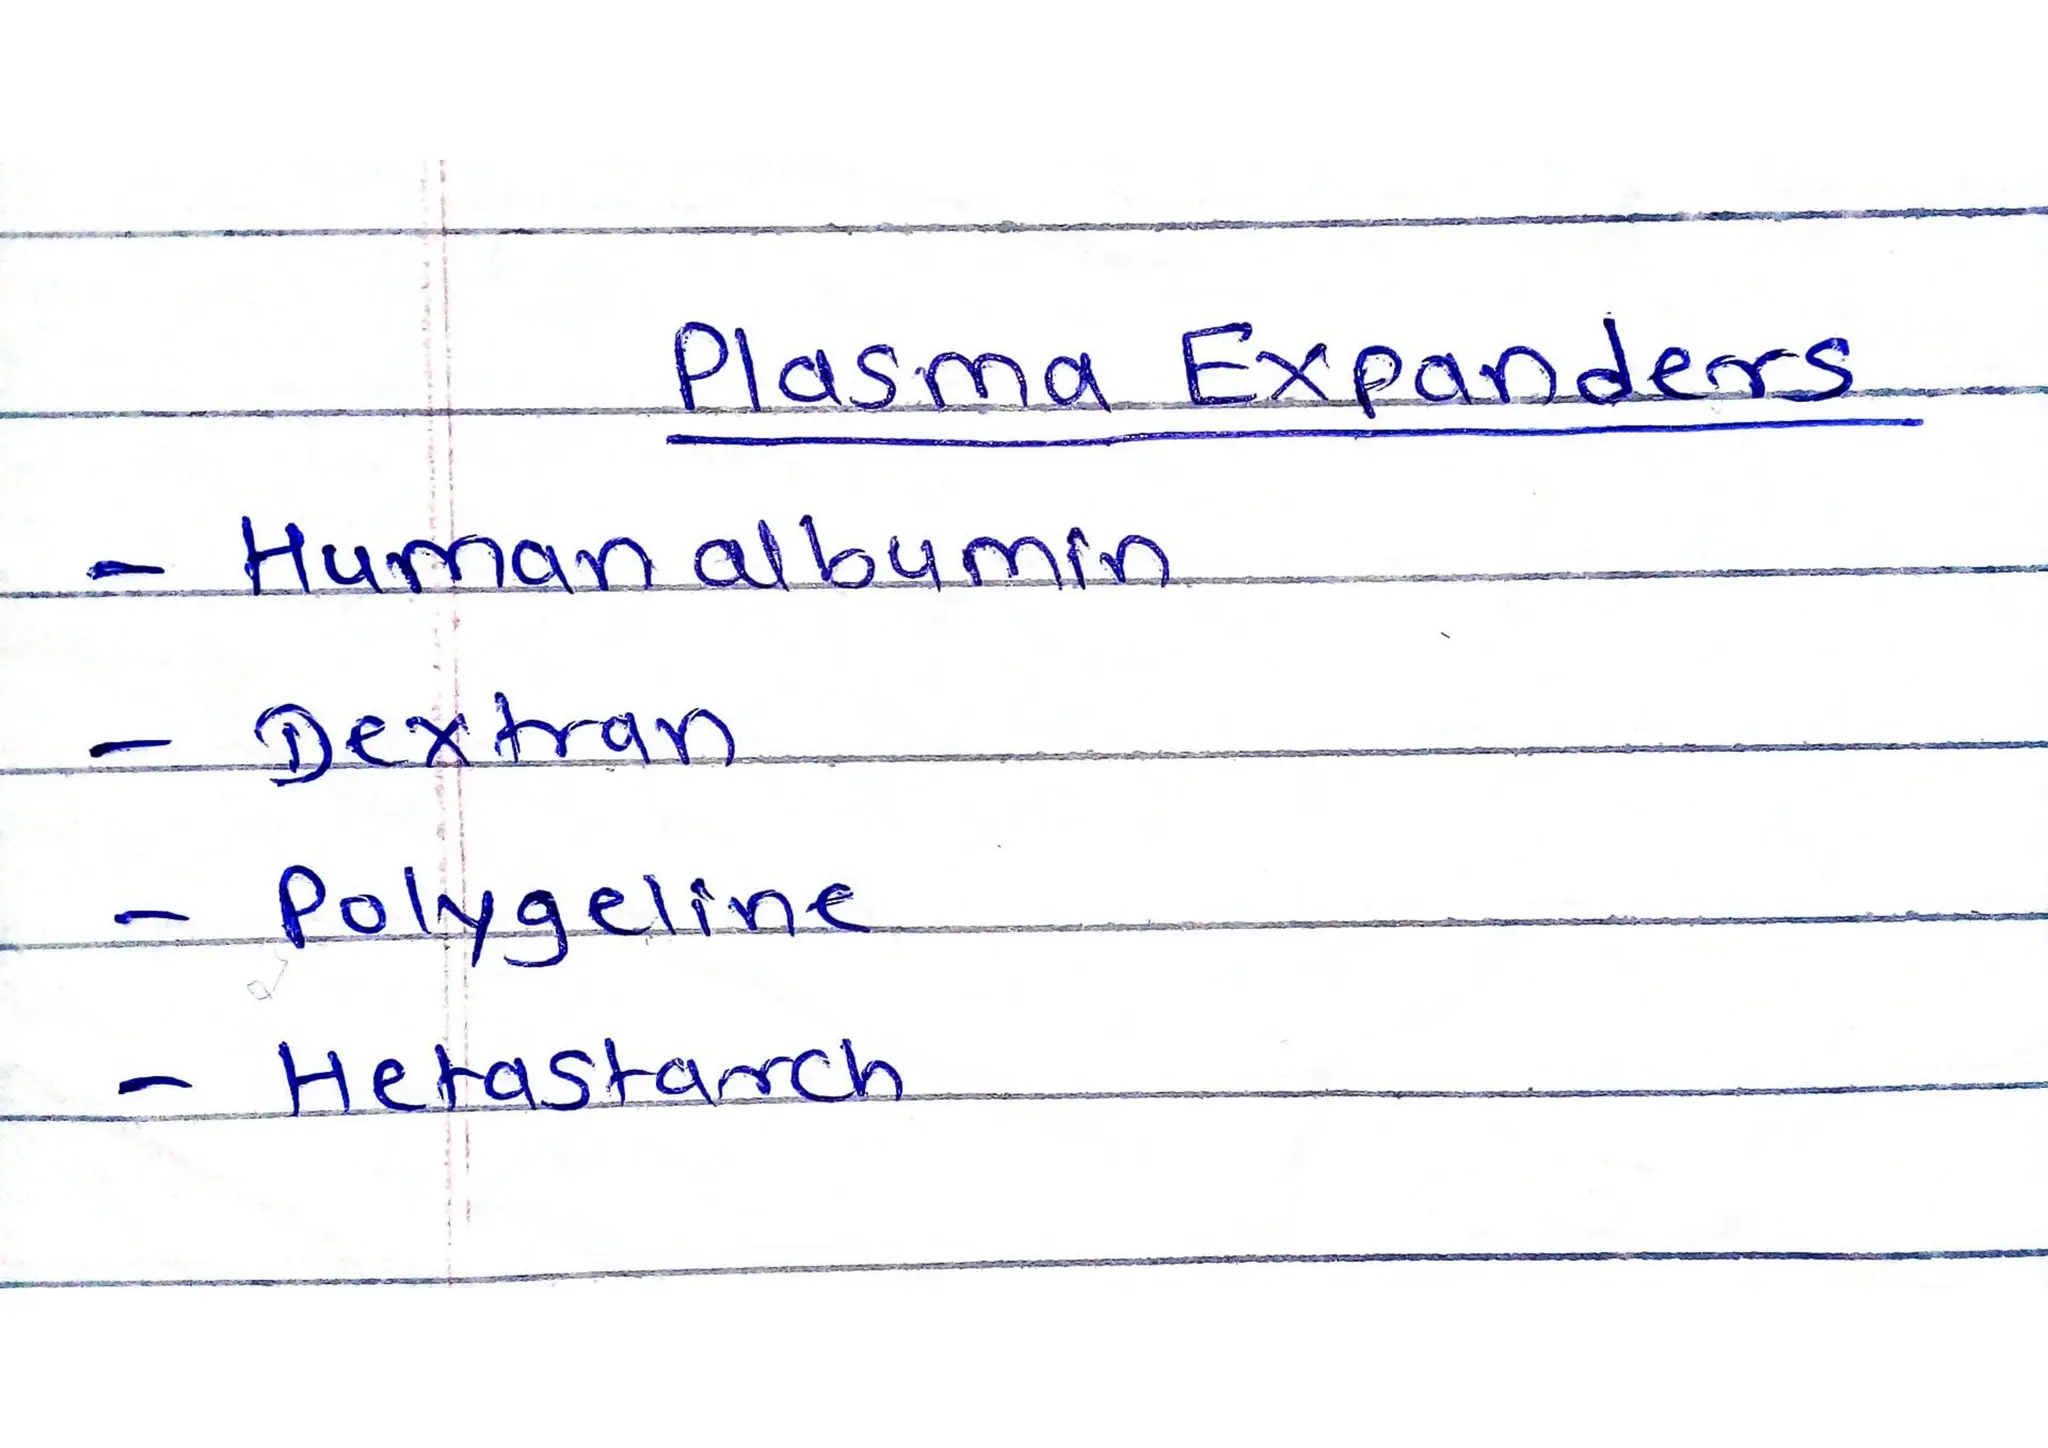 Plasma Expanders
- Human albumin
- Dextran
- Polygeline
- Hetastarch